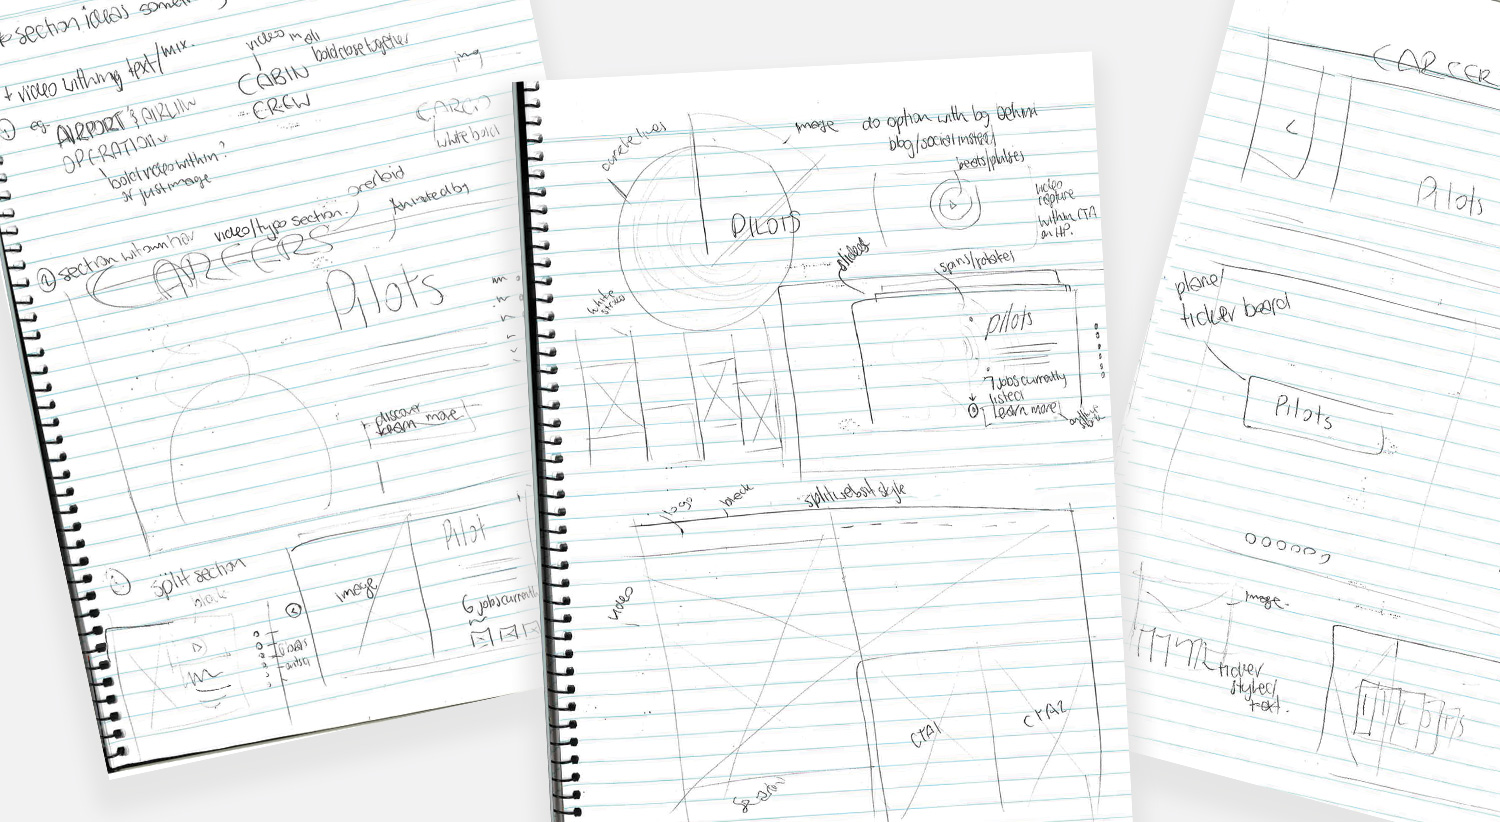 section ideas
+ video withing text/mix.
① eg. AIRPORT & AIRLINE
OPERATION
bold video within?
or just image
video in
bold close together
CABIN
CREW
img
CARGO
white bold
② section with own
video/typo section.
overlaid
Animated bg
CAREERS
Pilots
discover
learn more
split section
black
image
Pilot
6 jobs currently
circle lines
image
PILOTS
white
do option with bg behind
blog/social instead
beats/pulses
video
capture
within CTA
on HP.
slides
spins/rotates
Pilots
7 jobs currently
listed
learn more
logo
black
split websit style
video
CTA1
CTA2
CAREER
Pilots
plane/
ticker board
Pilots
image.
ticker
styled
text.